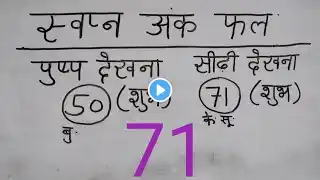 स्वप्न अंक फल
पुष्प देखना सीढ़ी देखना
50 (शुभ) 71 (शुभ)
बु. के सू.
71